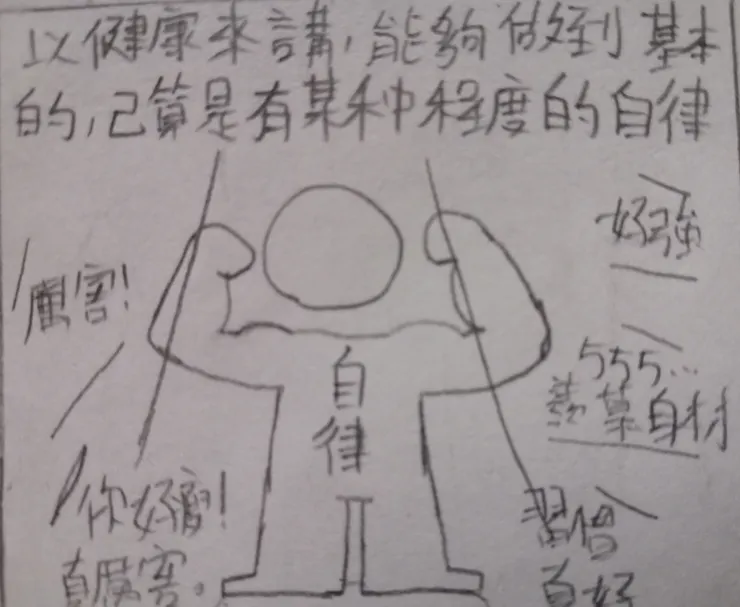 以健康來講，能夠做到基本
的，已算是有某种程度的自律
好強
厲害！
555...
羨慕身材
自
律
你好厲！
真厲害。
習慣
真好